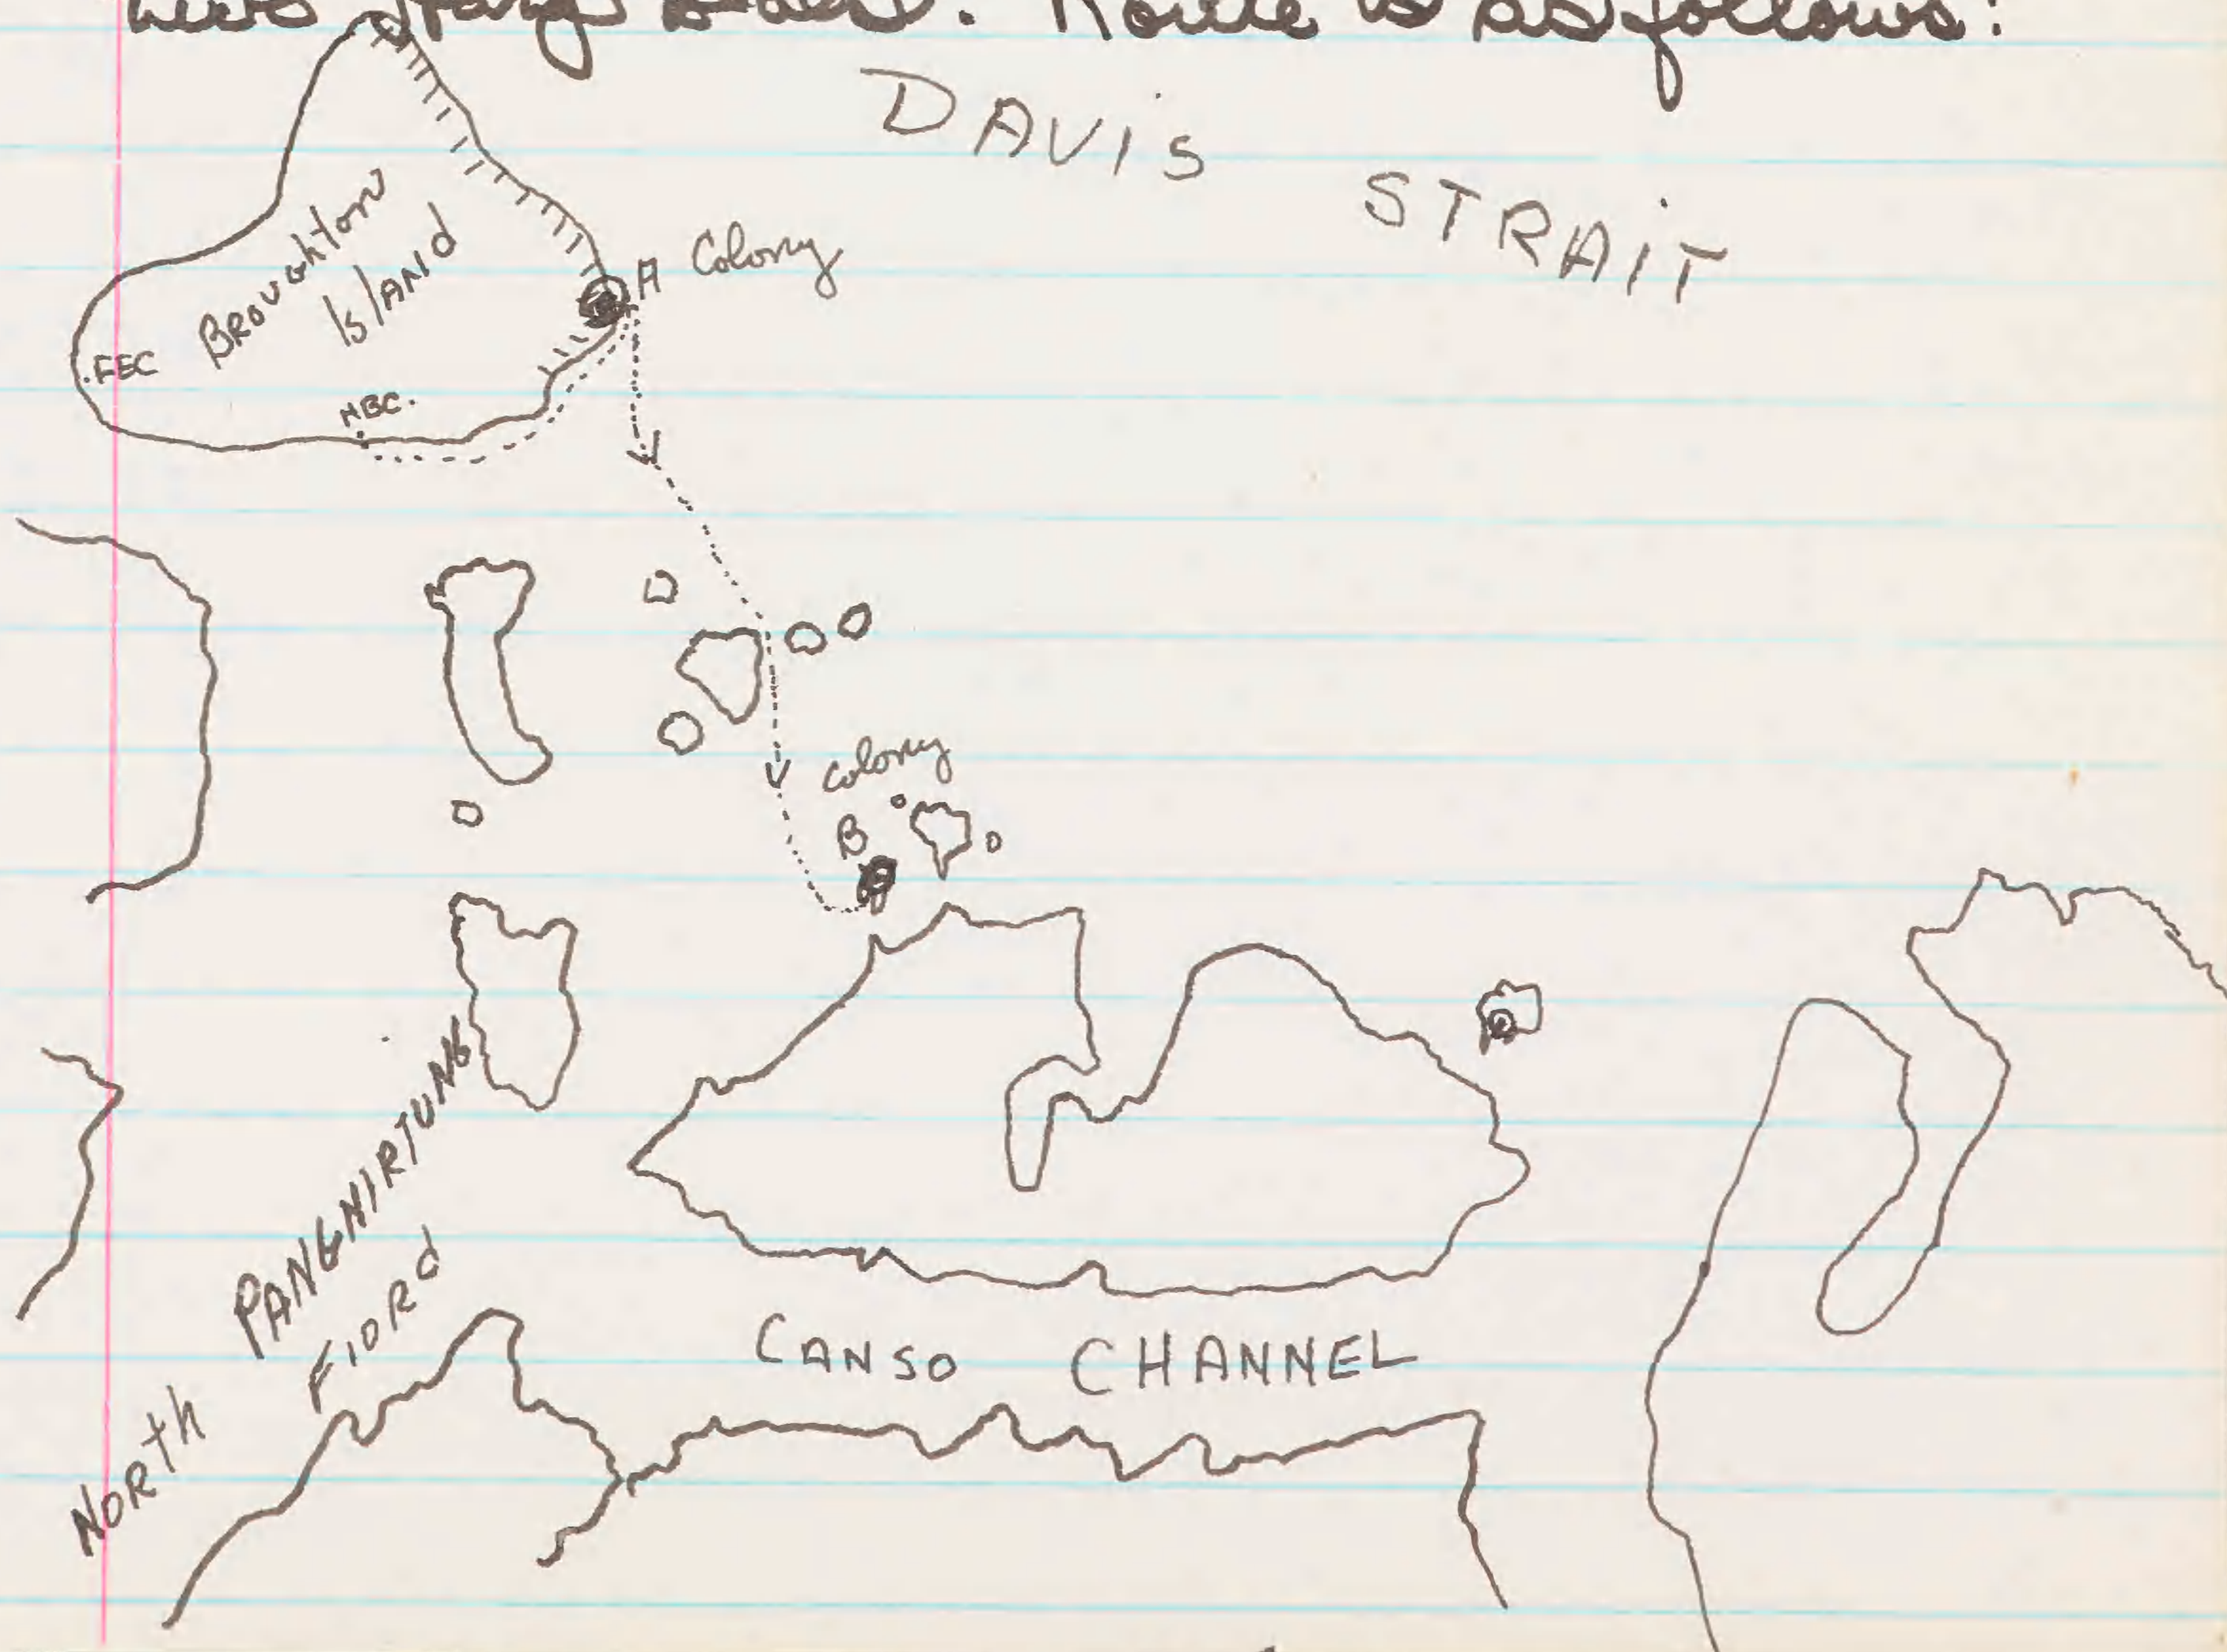 Route is as follows:
DAVIS STRAIT
BROUGHTON
ISLAND
A Colony
.FEC
HBC.
colony
B
NORTH PANGNIRTUNG
FIORD
CANSO CHANNEL